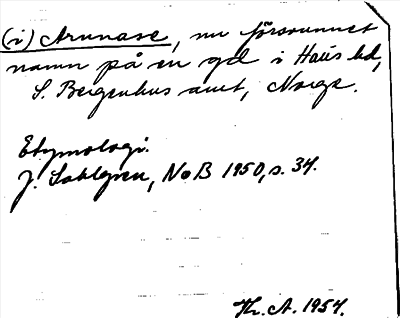 (i) Arunase, nu försvunnet
namn på en gd i Haus hd,
S. Bergenhus amt, Norge.
Etymologi.
J. Sahlgren, NoB 1950, s. 34.
Th. A. 1954.